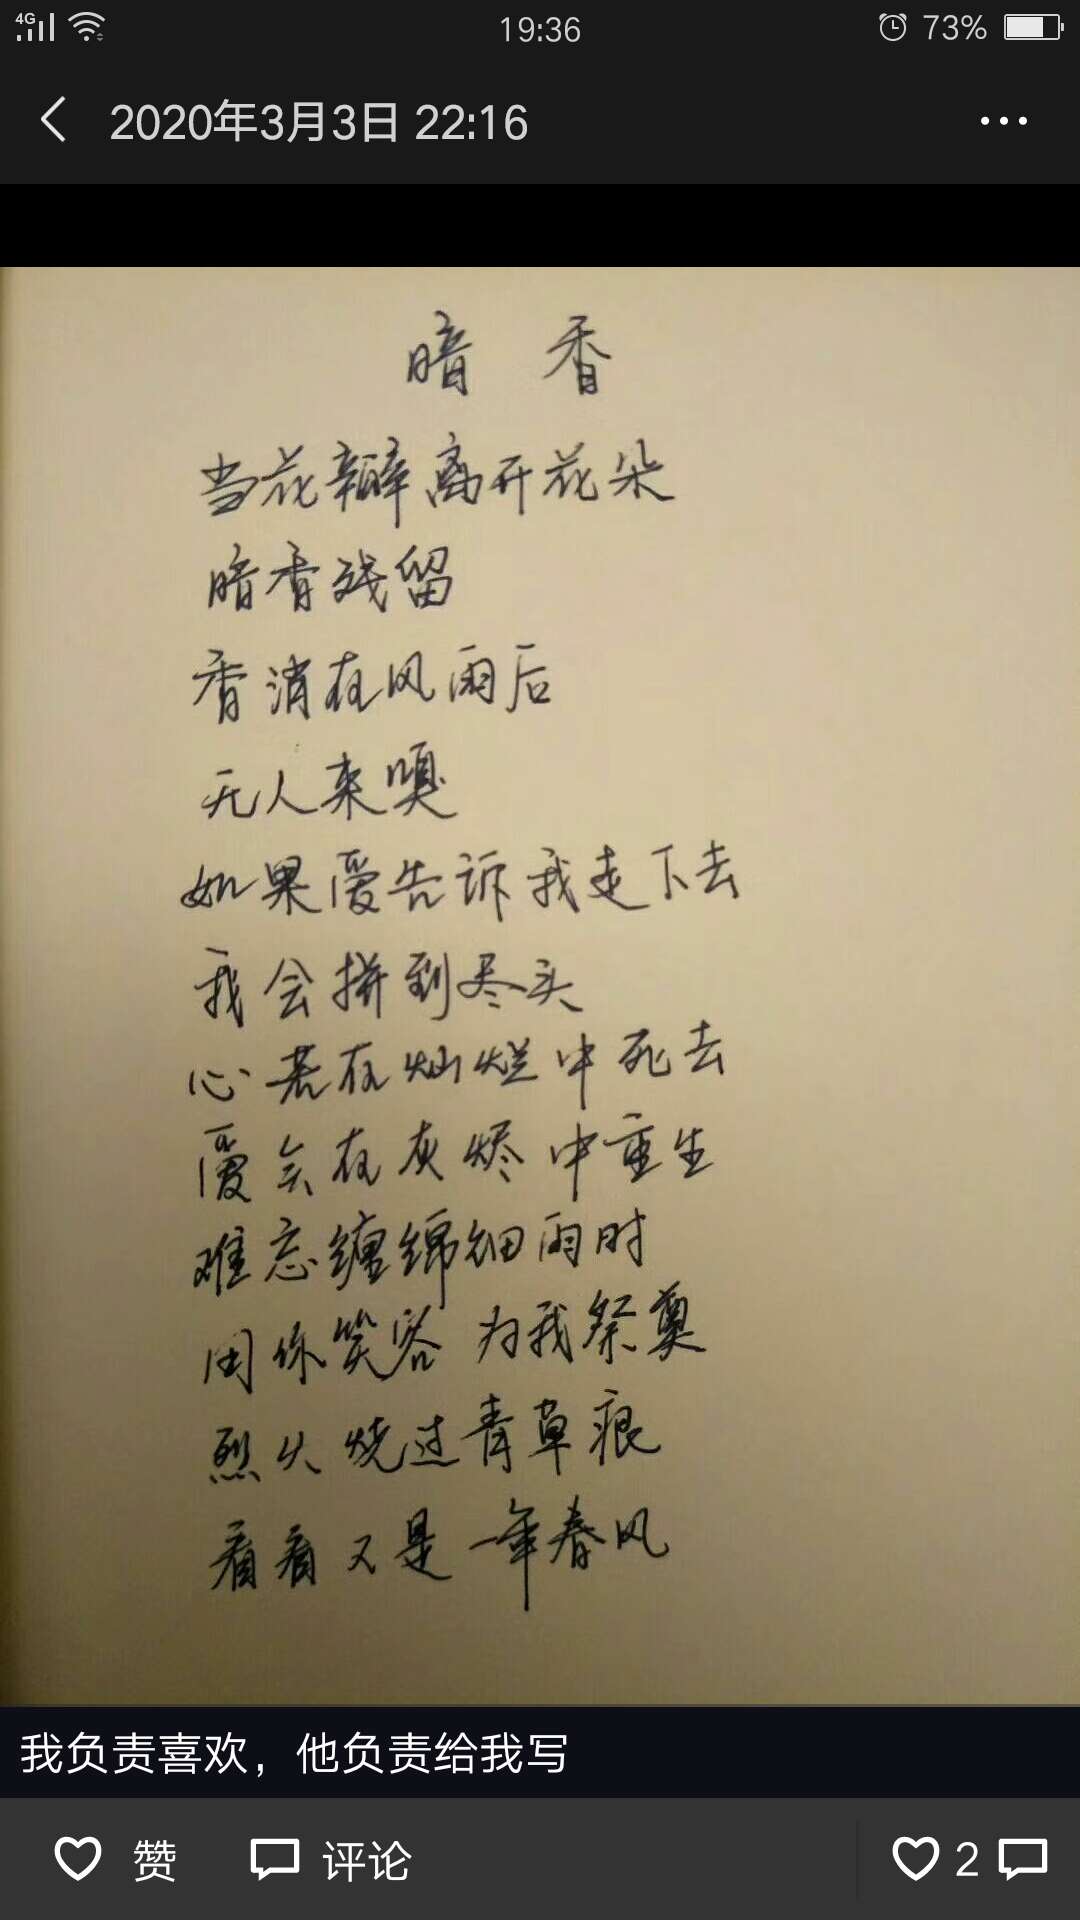 4G
19:36
73%
2020年3月3日 22:16
暗香
当花瓣离开花朵
暗香残留
香消在风雨后
无人来嗅
如果爱告诉我走下去
我会拼到尽头
心若在灿烂中死去
爱会在灰烬中重生
难忘缠绵细雨时
用你笑容 为我祭奠
烈火烧过青草痕
看看又是一年春风
我负责喜欢，他负责给我写
赞
评论
2